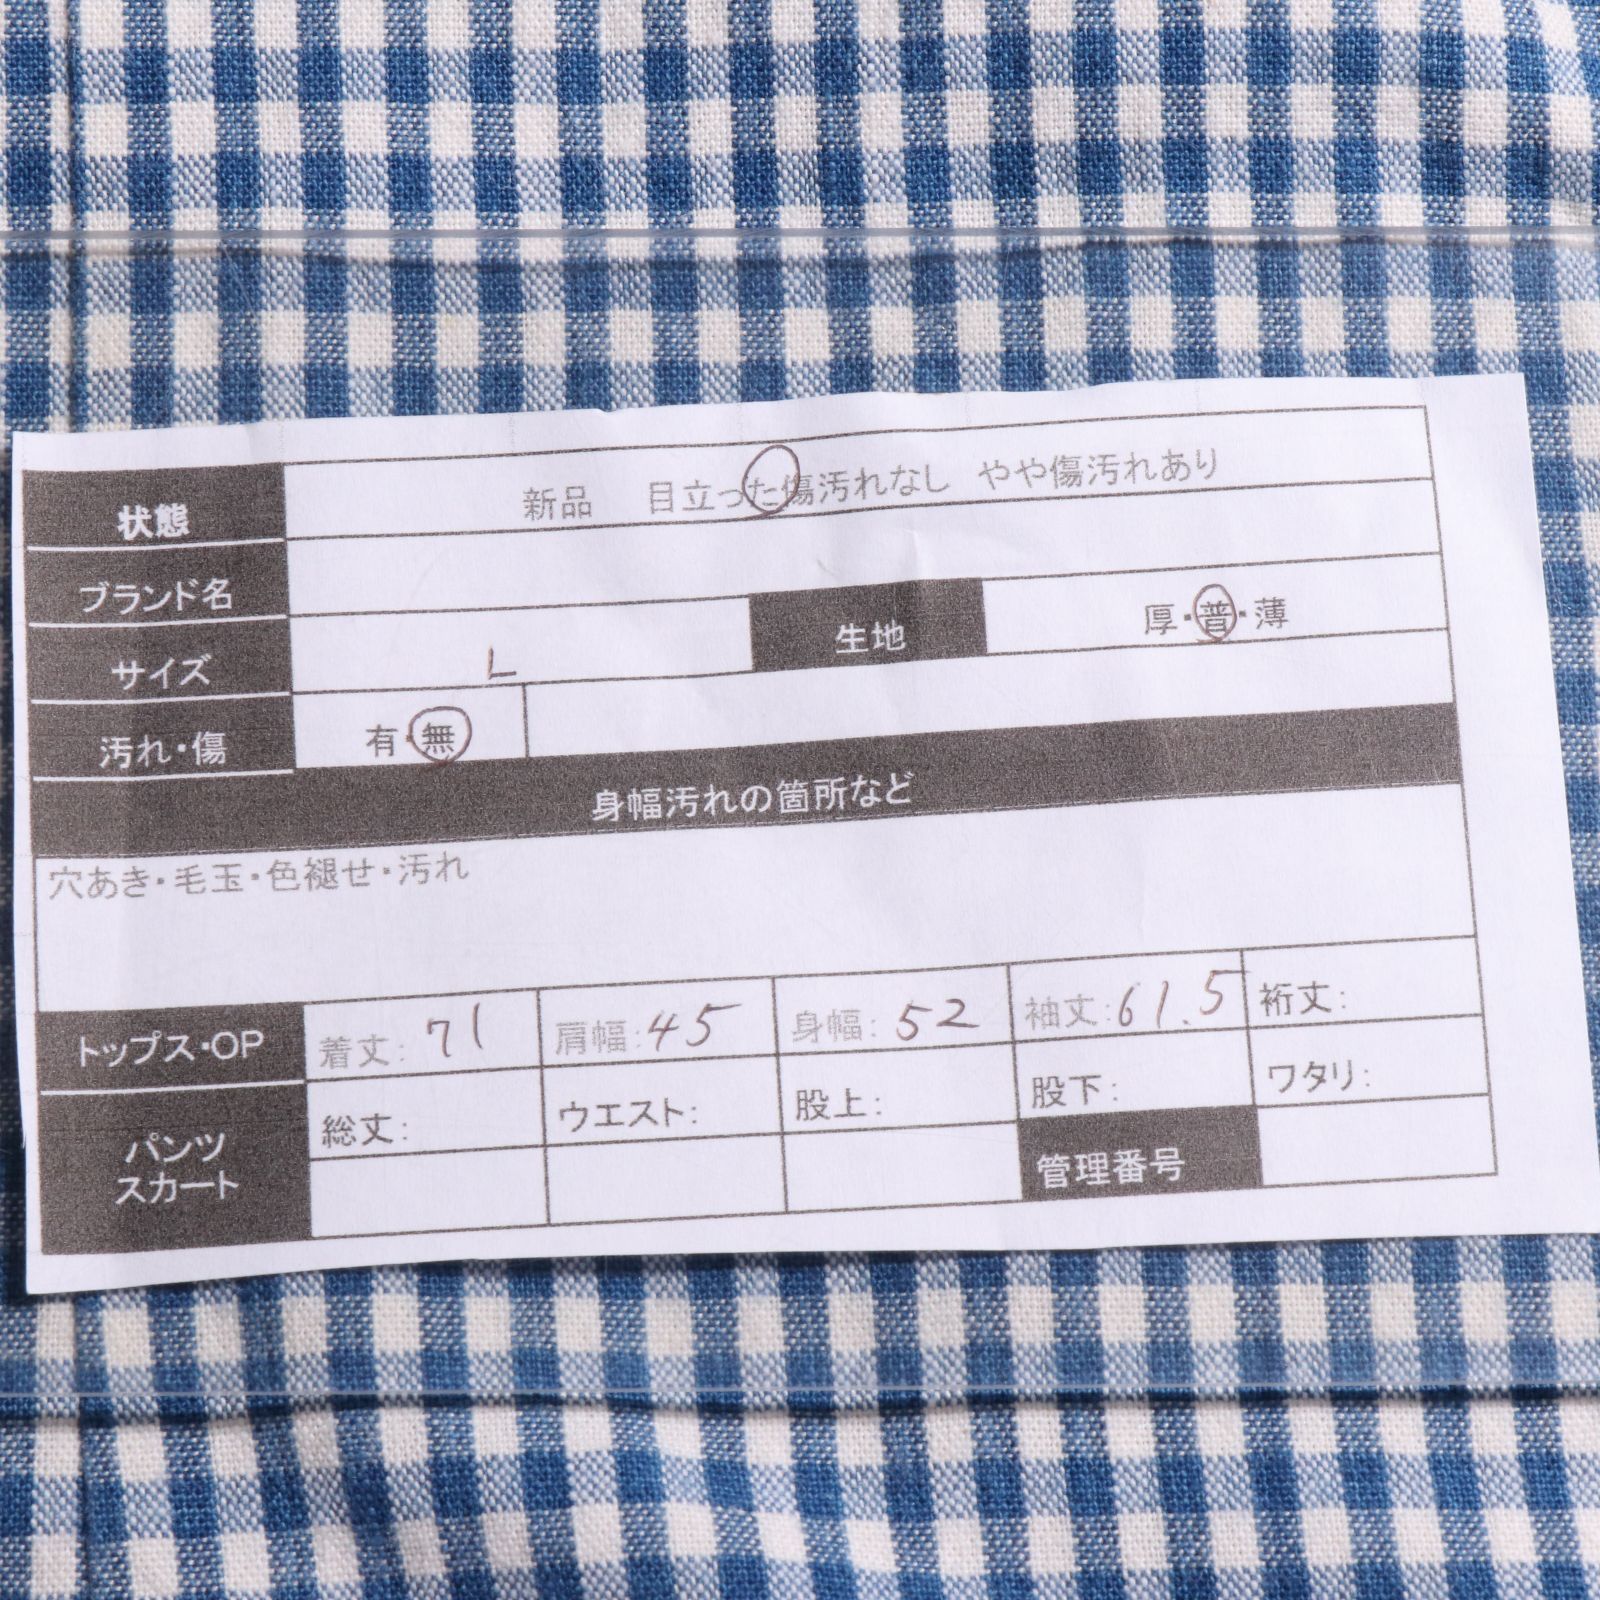 状態 新品 目立った傷汚れなし やや傷汚れあり
ブランド名
サイズ L 生地 厚・普・薄
汚れ・傷 有・無
身幅汚れの箇所など
穴あき・毛玉・色褪せ・汚れ
トップス・OP 着丈: 71 肩幅: 45 身幅: 52 袖丈: 61.5 裄丈:
パンツ スカート 総丈: ウエスト: 股上: 股下: ワタリ:
管理番号